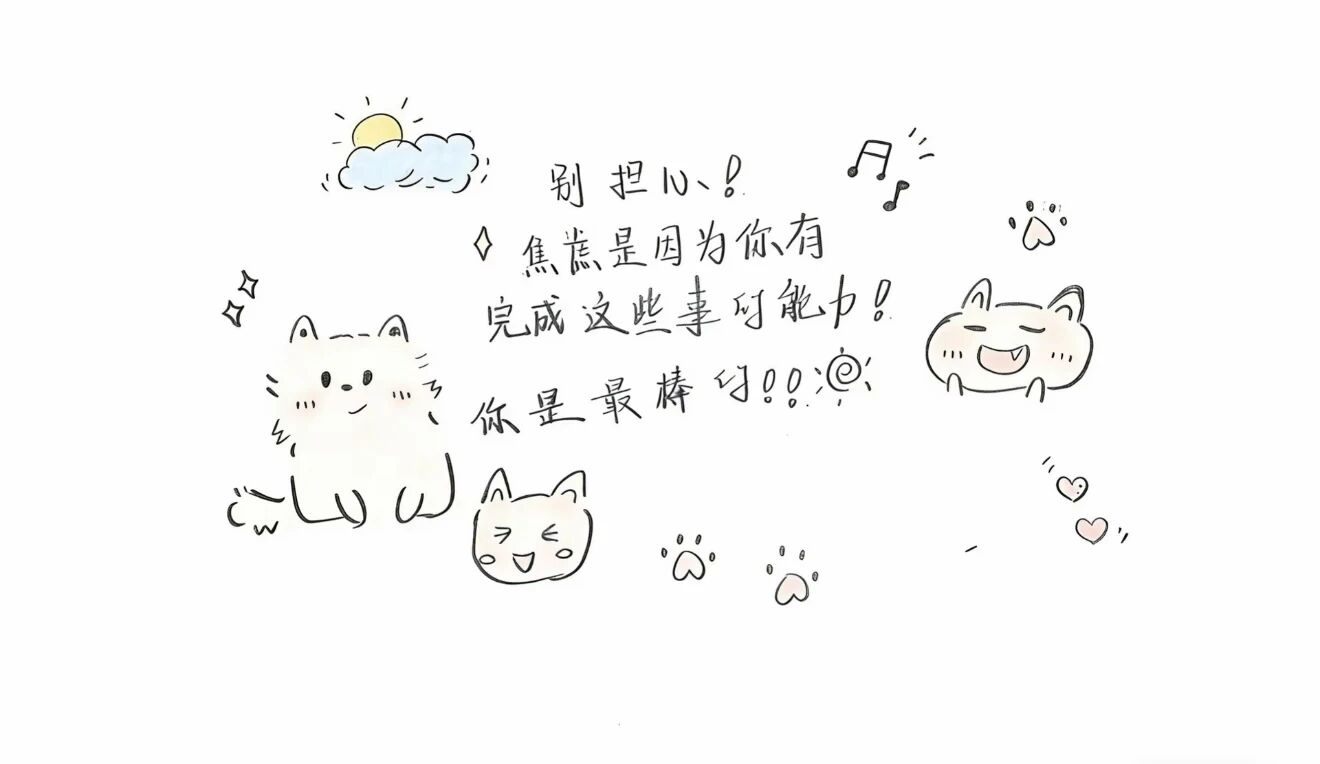 别担心!
焦蕉是因为你有
完成这些事的能力!
你是最棒的!!